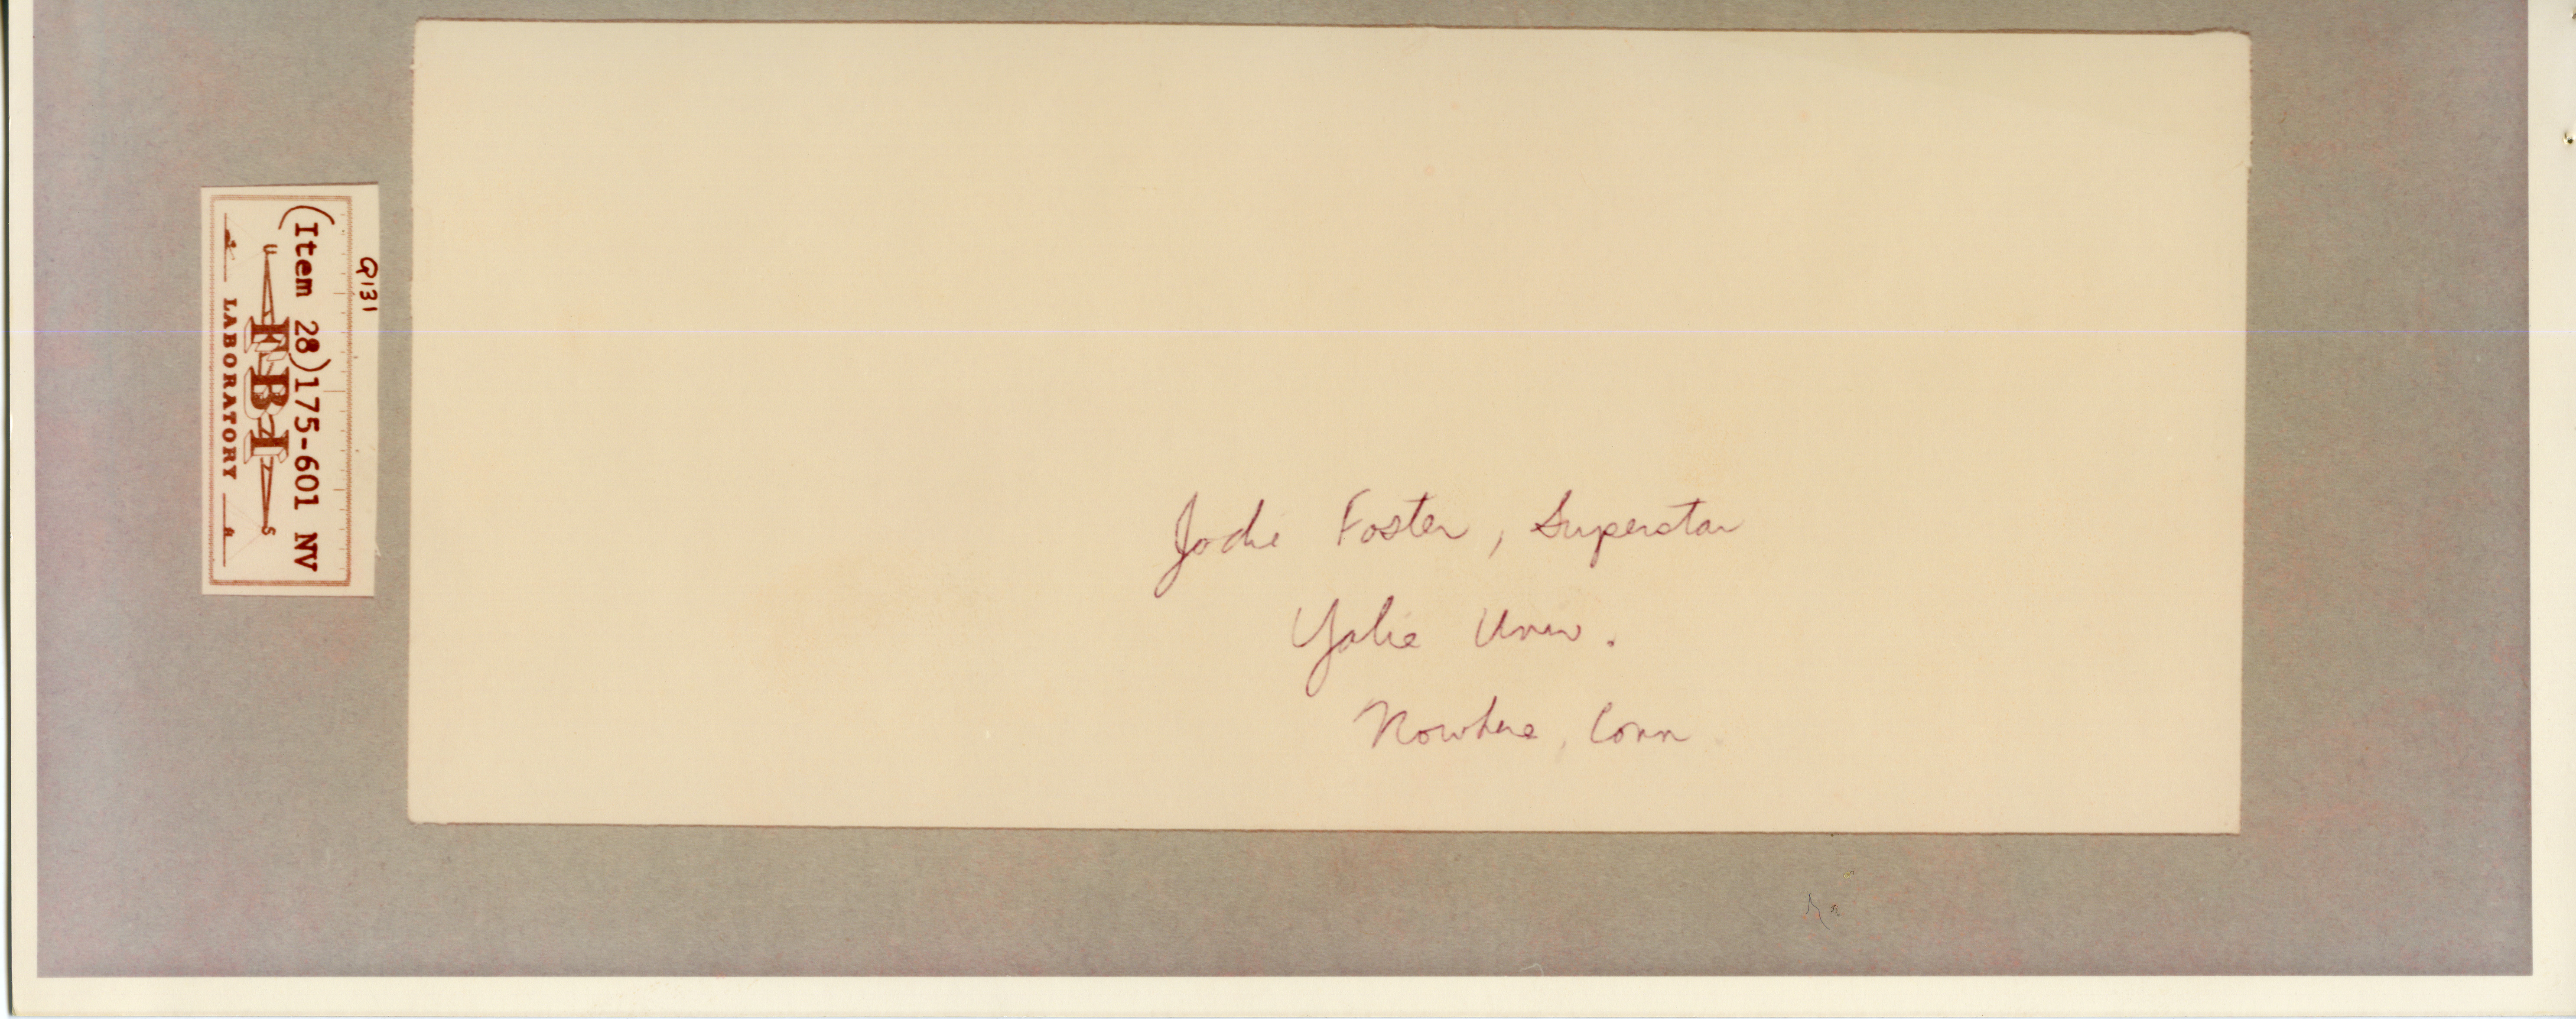 Q131
(Item 28)175-601 NV
FBI
LABORATORY
Jodie Foster, Superstar
Yalie Univ.
Nowhere, Conn